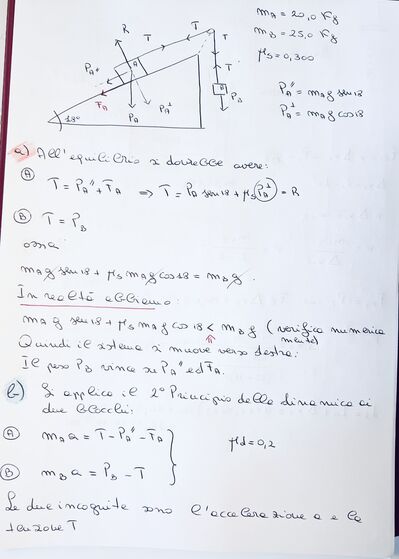 mA = 20,0 Kg
mB = 25,0 Kg
μs = 0,300
PA" = mAg sen18
PA⊥ = mAg cos18
R T T T T
PA" A B
FA PA PA⊥ PB
18°
a) All'equilibrio si dovrebbe avere:
A T = PA" + FA ⇒ T = PA sen18 + μs PA⊥ = R
B T = PB
ossia:
mAg sen18 + μs mAg cos18 = mBg.
In realtà abbiamo:
mAg sen18 + μs mAg cos18 < mBg (verifica numerica
mente)
Quindi il sistema si muove verso destra:
Il peso PB vince su PA" ed FA.
b) Si applica il 2° Principio della dinamica ai
due blocchi:
A mA a = T - PA" - FA
μd = 0,2
B mB a = PB - T
Le due incognite sono l'accelerazione a e la
tensione T